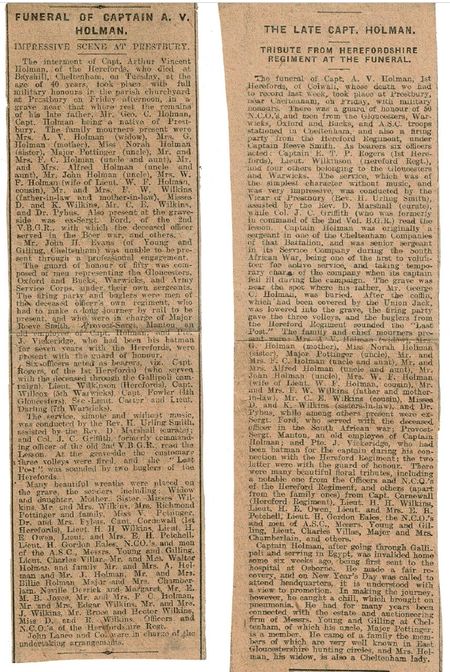 FUNERAL OF CAPTAIN A. V.
HOLMAN.
IMPRESSIVE SCENE AT PRESTBURY.
The interment of Capt. Arthur Vincent
Holman, of the Herefords, who died at
Bayshill, Cheltenham, on Tuesday, at the
age of 40 years, took place with full
military honours in the parish churchyard
at Prestbury on Friday afternoon, in a
grave near that where rest the remains
of his late father, Mr. Geo. C. Holman,
Mrs. Holman being a native of Prest-
bury. The family mourners present were
Mrs. A. V. Holman (widow), Mrs. G.
Holman (mother), Miss Norah Holman
(sister), Major Pottinger (uncle), Mr. and
Mrs. F. C. Holman (uncle and aunt), Mr.
and Mrs. Alfred Holman (uncle and
aunt), Mr. John Holman (uncle), Mrs. W.
F. Holman (wife of Lieut. W. F. Holman,
cousin), Mr. and Mrs. F. W. Wilkins
(father-in-law and mother-in-law), Misses
D. and K. Wilkins, Mr. C. E. Wilkins,
and Dr. Pybus. Also present at the grave-
side was ex-Sergt. Ford, of the 2nd
V.B.G.R., with which the deceased officer
served in the Boer war, and others.
Mr. John H. Evans (of Young and
Gilling, Cheltenham) was unable to be pre-
sent through a professional engagement.
The guard of honour of fifty was com-
posed of men representing the Gloucesters,
Oxford and Bucks, and Warwicks, and Army
Service Corps, under their own sergeants.
The firing party and buglers were men of
the deceased officer's own regiment, who
had to make a long journey by rail to be
present, and were in charge of Major
Reeve Smith. Provost-Sergt. Manton, an
J. Vickeridge, who had been his batman
for seven years with the Herefords, were
present with the guard of honour.
Six officers acted as bearers, viz. Capt.
Rogers, of the 1st Herefords) (who served
with the deceased through the Gallipoli cam-
paign), Lieut. Wilkinson (Herefords), Capt.
Willcox (5th Warwicks), Capt. Fowler (4th
Gloucesters), Sec.-Lieut. Carter and Lieut.
Darling (7th Warwicks).
The service, simple and without music,
was conducted by the Rev. H. Urling Smith,
assisted by the Rev. D. Marshall (curate),
and Col. J. C. Griffith, formerly command-
ing officer of the old 2nd V.B.G.R., read the
Lesson. At the graveside the customary
three volleys were fired, and the "Last
Post" was sounded by two buglers of the
Herefords.
Many beautiful wreaths were placed on
the grave, the senders including: Widow
and daughter, Mother, Sister, Misses Wil-
kins, Mr. and Mrs. Wilkins, Mrs. Richmond
Pottinger and family, Miss V. Pottinger,
Dr. and Mrs. Pybus, Capt. Cornewall (1st
Herefords), Lieut. H. H. Wilkins, Lieut. H.
E. Owen, Lieut. and Mrs. E. H. Petchell,
Lieut. H. Gordon Eales, N.C.O.'s and men
of the A.S.C., Messrs. Young and Gilling,
Lieut. Charles Villar, Mr. and Mrs. Walter
Holman and family, Mr. and Mrs. A. Hol-
man and Mr. J. Holman, Mr. and Mrs.
Billie Holman, Major and Mrs. Chamber-
lain, Neville Derrick and Margaret, Mr. E.
M. B. Joyes, Mr. and Mrs. F. C. Holman,
Mr. and Mrs. Edgar Wilkins, Mr. and Mrs.
J. Wilkins, Mr. Bruce and Hector Wilkins,
Miss D. and K. Wilkins, Officers and
N.C.O.'s of the Herefordshire Regt.
John Lance and Co. were in charge of the
undertaking arrangements.
THE LATE CAPT. HOLMAN.
TRIBUTE FROM HEREFORDSHIRE
REGIMENT AT THE FUNERAL.
The funeral of Capt. A. V. Holman, 1st
Herefords, of Colwall, whose death we had
to record last week, took place at Prestbury,
near Cheltenham, on Friday, with military
honours. There was a guard of honour of 50
N.C.O.'s and men from the Gloucesters, War-
wicks, Oxford and Bucks, and A.S.C. troops
stationed in Cheltenham, and also a firing
party from the Hereford Regiment, under
Captain Reeve Smith. As bearers six officers
acted: Captain E. T. P. Rogers (1st Here-
fords), Lieut. Wilkinson (Hereford Regt.),
and four others belonging to the Gloucesters
and Warwicks. The service, which was of
the simplest character without music, and
was very impressive, was conducted by the
Vicar of Prestbury (Rev. H. Urling Smith),
assisted by the Rev. D. Marshall (curate),
while Col. J. C. Griffith (who was formerly
in command of the 2nd Vol. B.G.R.) read the
lesson. Captain Holman was originally a
sergeant in one of the Cheltenham Companies
of that Battalion, and was senior sergeant
in its Service Company during the South
African War, being one of the first to volun-
teer for active service, and taking tempo-
rary charge of the company when its captain
fell ill during the campaign. The grave was
near the spot where his father, Mr. George
C. Holman, was buried. After the coffin,
which had been covered by the Union Jack,
was lowered into the grave, the firing party
gave three volleys, and the buglers from
the Hereford Regiment sounded the "Last
Post." The family and chief mourners pre-
sent were: Mrs. A. V. Holman (widow), Mrs.
G. Holman (mother), Miss Norah Holman
(sister), Major Pottinger (uncle), Mr. and
Mrs. F. C. Holman (uncle and aunt), Mr. and
Mrs. Alfred Holman (uncle and aunt), Mr.
John Holman (uncle), Mrs. W. F. Holman
(wife of Lieut. W. F. Holman, cousin), Mr.
and Mrs. F. W. Wilkins (father and mother-
in-law), Mr. C. E. Wilkins (cousin), Misses
D. and K. Wilkins (sisters-in-law), and Dr.
Pybus, while among others present were ex-
Sergt. Ford, who served with the deceased
officer in the South African War; Provost-
Sergt. Manton, an old employee of Captain
Holman; and Pte. J. Vickeridge, who had
been batman for the captain during his con-
nection with the Hereford Regiment; the two
latter were with the guard of honour. There
were many beautiful floral tributes, including
a notable one from the Officers and N.C.O.'s
of the Hereford Regiment, and others (apart
from the family ones) from Capt. Cornewall
(Hereford Regiment), Lieut. H. H. Wilkins,
Lieut. H. E. Owen, Lieut. and Mrs. E. H.
Petchell, Lieut. H. Gordon Eales, the N.C.O.'s
and men of A.S.C., Messrs. Young and Gil-
ling, Lieut. Charles Villar, Major and Mrs.
Chamberlain, and others.
Captain Holman, after going through Galli-
poli and serving in Egypt, was invalided home
some six weeks ago, being first sent to the
hospital at Osborne. He made a fair re-
covery, and on New Year's Day was called to
attend headquarters, it is understood with
a view to promotion. In making the journey,
however, he caught a chill, which brought on
pneumonia. He had for many years been
connected with the estate and auctioneering
firm of Messrs. Young and Gilling at Chel-
tenham, of which his uncle, Major Pottinger,
is a member. He came of a family the mem-
bers of which are very well known in East
Gloucestershire hunting circles, and Mrs. Hol-
man, his widow, is also a Cheltenham lady.